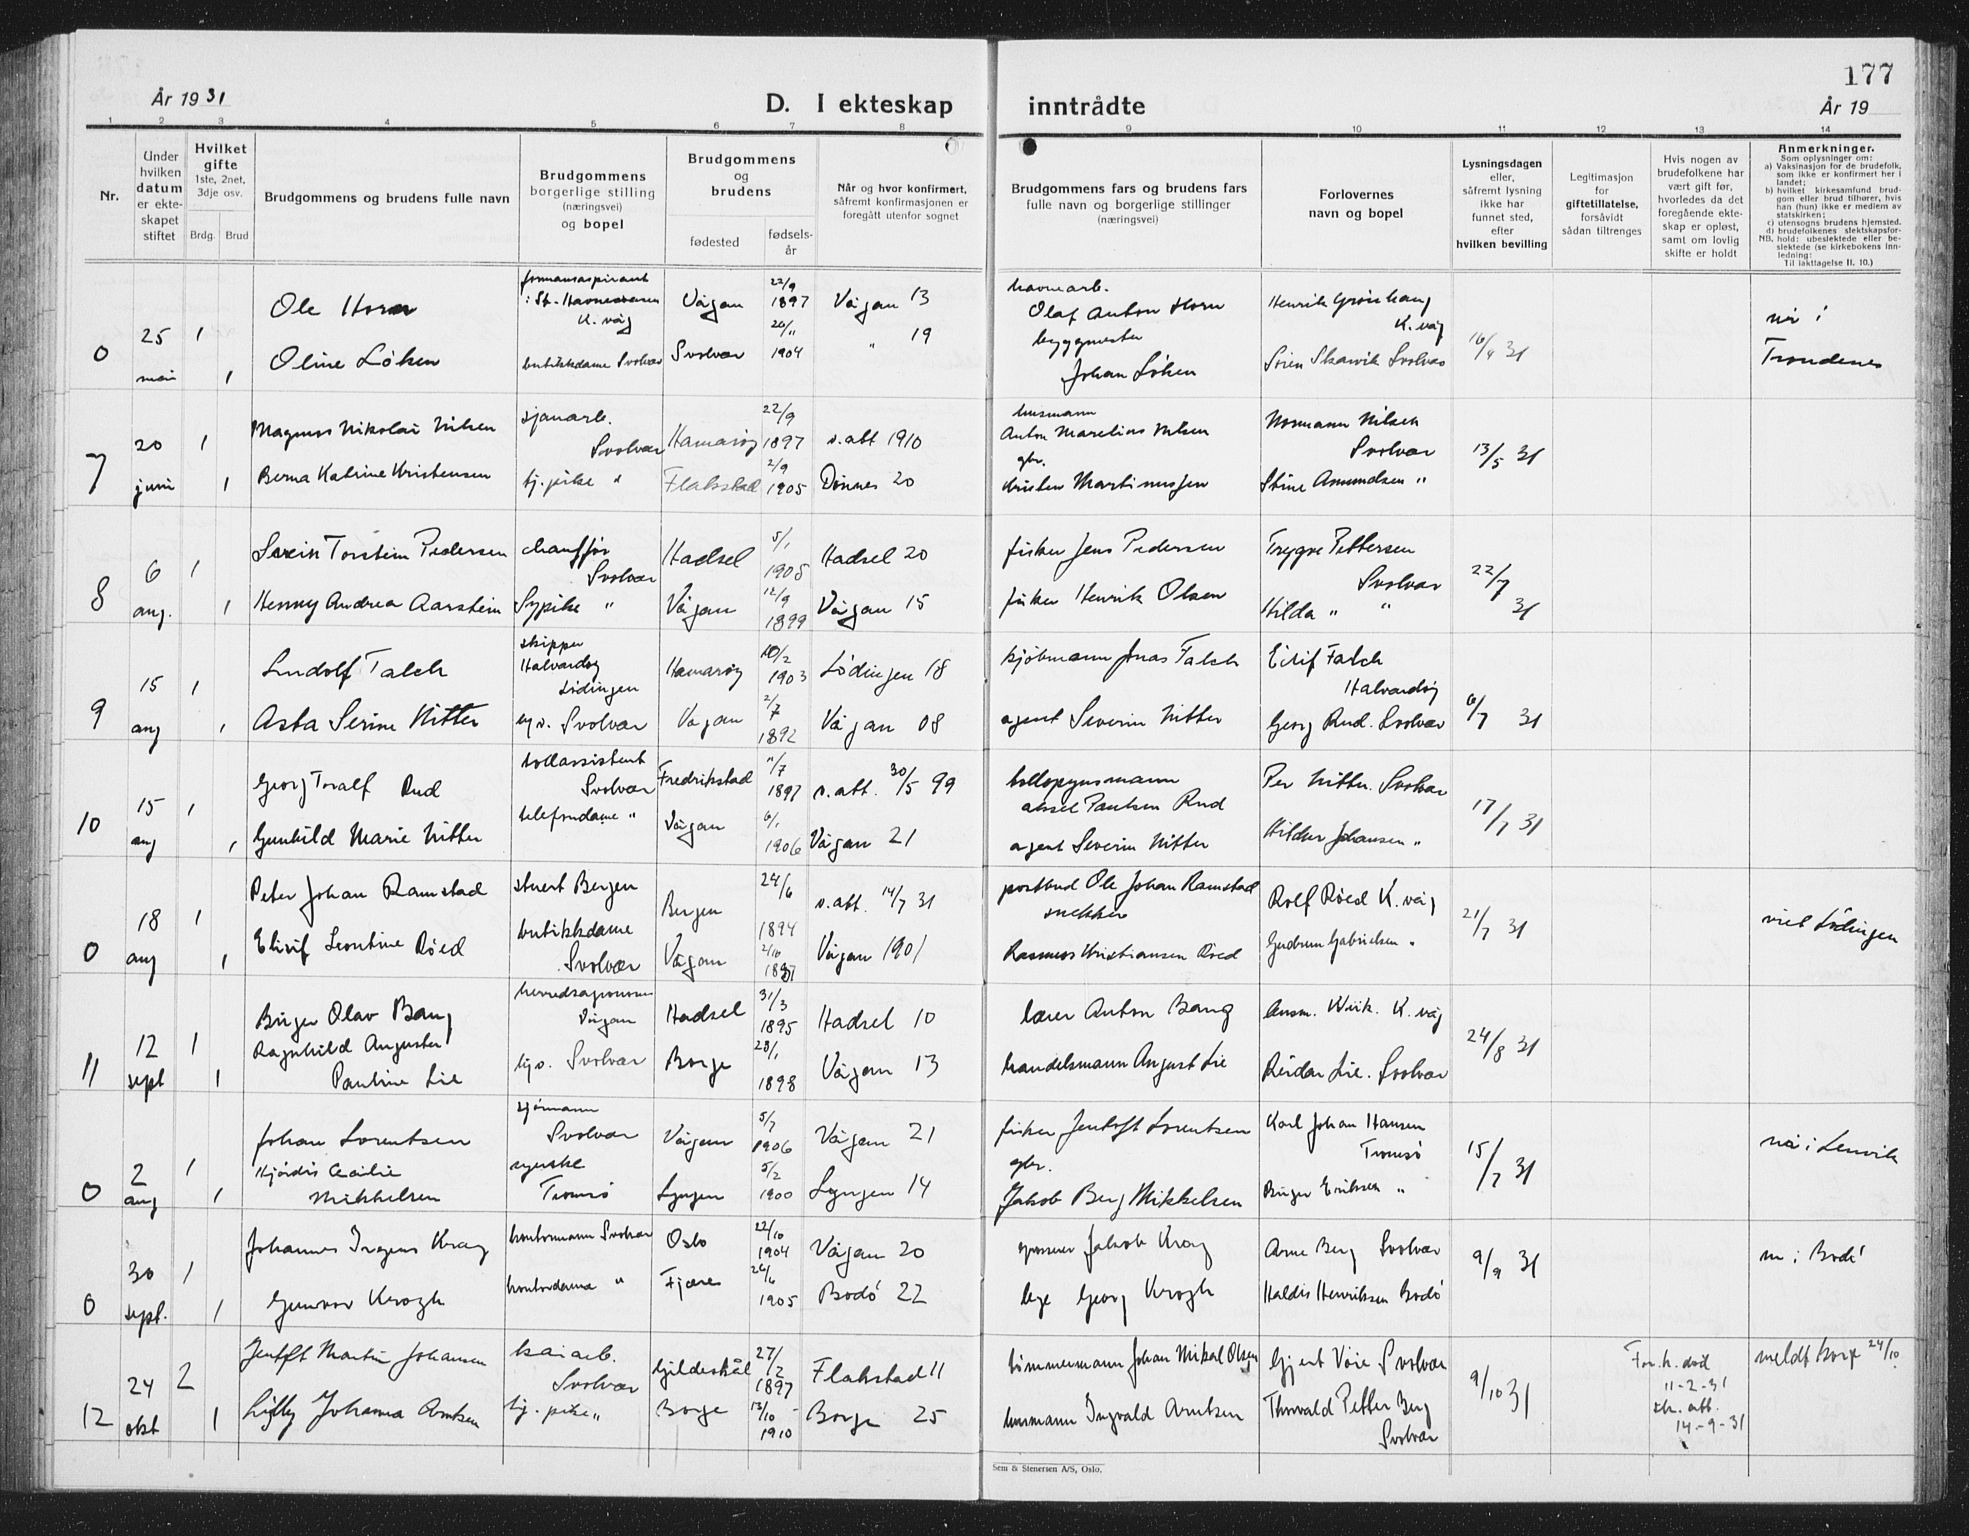 177
År 1931
D. I ekteskap inntrådte
År 19
1 2 3 4 5 6 7 8 9 10 11 12 13 14
Nr.
Under hvilken datum er ekte- skapet stiftet
Hvilket gifte 1ste, 2net, 3dje osv.
Brdg. Brud
Brudgommens og brudens fulle navn
Brudgommens borgerlige stilling (næringsvei) og bopel
Brudgommens og brudens
fødested
fødsels- år
Når og hvor konfirmert, såfremt konfirmasjonen er foregått utenfor sognet
Brudgommens fars og brudens fars fulle navn og borgerlige stillinger (næringsvei)
Forlovernes navn og bopel
Lysningsdagen eller, såfremt lysning ikke har funnet sted, efter hvilken bevilling
Legitimasjon for giftetillatelse, forsåvidt sådan tiltrenges
Hvis nogen av brudefolkene har vært gift før, hvorledes da det foregående ekte- skap er opløst, samt om lovlig skifte er holdt
Anmerkninger.
Som oplysninger om:
a) Vaksinasjon for de brudefolk, som ikke er konfirmert her i landet;
b) hvilket kirkesamfund brud- gom eller brud tilhører, hvis han (hun) ikke er medlem av statskirken;
c) utensogns brudens hjemsted.
d) brudefolkenes slektskapsfor- hold: ubeslektede eller be- slektede (se kirkebokens Inn- ledning:
NB.
Til iakttagelse II. 10.)
0 25 mai 1 Ole Horn St. Havnevesen K. våg Vågan 22/9 1897 Vågan 13 havnearb. Olaf Anton Horn Henrik Grønhaug K. våg 16/4 31 Trondenes
1 Oline Løken butikkdame Svolvær Svolvær 1904 " 19 byggmester Johan Løken Søren Skarvik Svolvær
7 20 juni 1 Magnus Nikolai Nilsen Svolvær Hamarøy 22/9 1897 d. att 1910 husmann Anton Marelius Nilsen Normann Nilsen Svolvær 13/5 31
1 Berna Katrine Kristensen tj. pike " Flakstad 2/9 1905 Dønnes 20 gbr. Kristen Martinussen Stine Amundsen "
8 6 aug. 1 Torstein Pedersen chauffør Svolvær Hadsel 5/1 1905 Hadsel 20 fisker Jens Pedersen Trygve Pettersen Svolvær 22/7 31
1 Henny Andrea Aarstein Sypike " Vågan 12/9 1899 Vågan 15 fisker Henrik Olsen Hilda " "
9 15 aug 1 Ludolf Falch skipper Halvardøy Lødingen Hamarøy 10/2 1903 Lødingen 18 kjøbmann Jonas Falch Eilif Falch Halvardøy 6/7 31
1 Asta Serine Nitter Svolvær Vågan 2/7 1892 Vågan 08 agent Severin Nitter Georg Rud. Svolvær
10 15 aug 1 Georg Toralf Rud tollassistent Svolvær Fredrikstad 11/7 1897 d. att. 30/5 99 tollopsynsmann Aksel Paulsen Rud Per Nitter. Svolvær 17/7 31
1 Gunhild Marie Nitter telefondame " Vågan 6/1 1906 Vågan 21 agent Severin Nitter Hildur Johansen "
0 18 aug 1 Peter Johan Ramstad stuert Bergen Bergen 24/6 1894 d. att. 14/7 31 postbud Ole Johan Ramstad Rolf Røed K. våg 21/7 31 viet Lødingen
1 Elivif Leontine Røed butikkdame Svolvær Vågan 2/10 Vågan 1901 snekker Rasmus Kristiansen Røed Gudrun Gabrielsen "
11 12 sept 1 Birger Olav Bang Vågan Hadsel 31/3 1895 Hadsel 10 lærer Anton Bang Ansm. Kiik. K. våg 24/8 31
1 Ragnhild Augusta Pauline Lie Svolvær Borge 23/1 1898 Vågan 13 handelsmann August Lie Reidar Lie. Svolvær
0 2 aug 1 Johan Lorentsen sjømann Svolvær Vågan 5/7 1906 Vågan 21 fisker Jentoft Lorentsen Karl Johan Hansen Tromsø 15/7 31 Lenvik
1 Hjørdis Cecilie Mikkelsen Tromsø Lyngen 5/2 1900 Lyngen 14 gbr. Jakob Berg Mikkelsen Birger Eriksen "
0 30 sept. 1 Johannes Irgens Krag kontormann Svolvær Oslo 22/10 1904 Vågan 20 Jakob Krag Arne Berg Svolvær 9/9 31 Bodø
1 Gunvor Krogh kontordame " Fjære 26/6 1905 Bodø 22 lege Georg Krogh Haldis Henriksen Bodø
12 24 okt 2 Jentoft Martin Johansen kaiarb. Svolvær Gildeskål 27/2 1897 Flakstad 11 tømmermann Johan Mikal Olsen Gjert Voie Svolvær 9/10 31 For. h. død 11-2-31 sk. att. 14-9-31 meldt Borge 24/10
1 Johanna Arntsen tj. pike " Borge 13/10 1910 Borge 25 husmann Ingvald Arntsen Thorvald Petter Berg Svolvær
Sem & Stenersen A/S, Oslo.